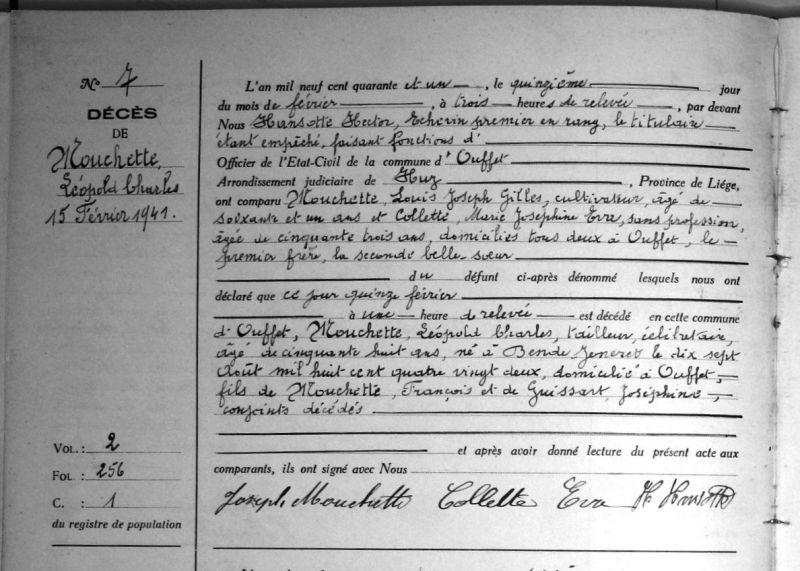 N° 7
DÉCÈS
DE
Mouchette,
Léopold Charles
15 Février 1941.
VOL. : 2
FOL : 256
C. : 1
du registre de population
L'an mil neuf cent quarante et un, le quinzième jour
du mois de février, à trois heures de relevée, par devant
Nous Hansotte Hector, Echevin premier en rang, le titulaire
étant empêché, faisant fonctions d'
Officier de l'Etat-Civil de la commune d'Ouffet
Arrondissement judiciaire de Huy, Province de Liége,
ont comparu Mouchette, Louis Joseph Gilles, cultivateur, âgé de
soixante et un ans et Collette, Marie Joséphine Eva, sans profession,
âgée de cinquante trois ans, domiciliés tous deux à Ouffet, le
premier frère, la seconde belle sœur
du défunt ci-après dénommé lesquels nous ont
déclaré que ce jour quinze février
à une heure de relevée est décédé en cette commune
d'Ouffet, Mouchette, Léopold Charles, tailleur, célibataire,
âgé de cinquante huit ans, né à Bende Jeneret le dix sept
août mil huit cent quatre vingt deux, domicilié à Ouffet,
fils de Mouchette, François et de Guissart, Joséphine,
conjoints décédés
et après avoir donné lecture du présent acte aux
comparants, ils ont signé avec Nous
Joseph Mouchette Collette Eva H Hansotte